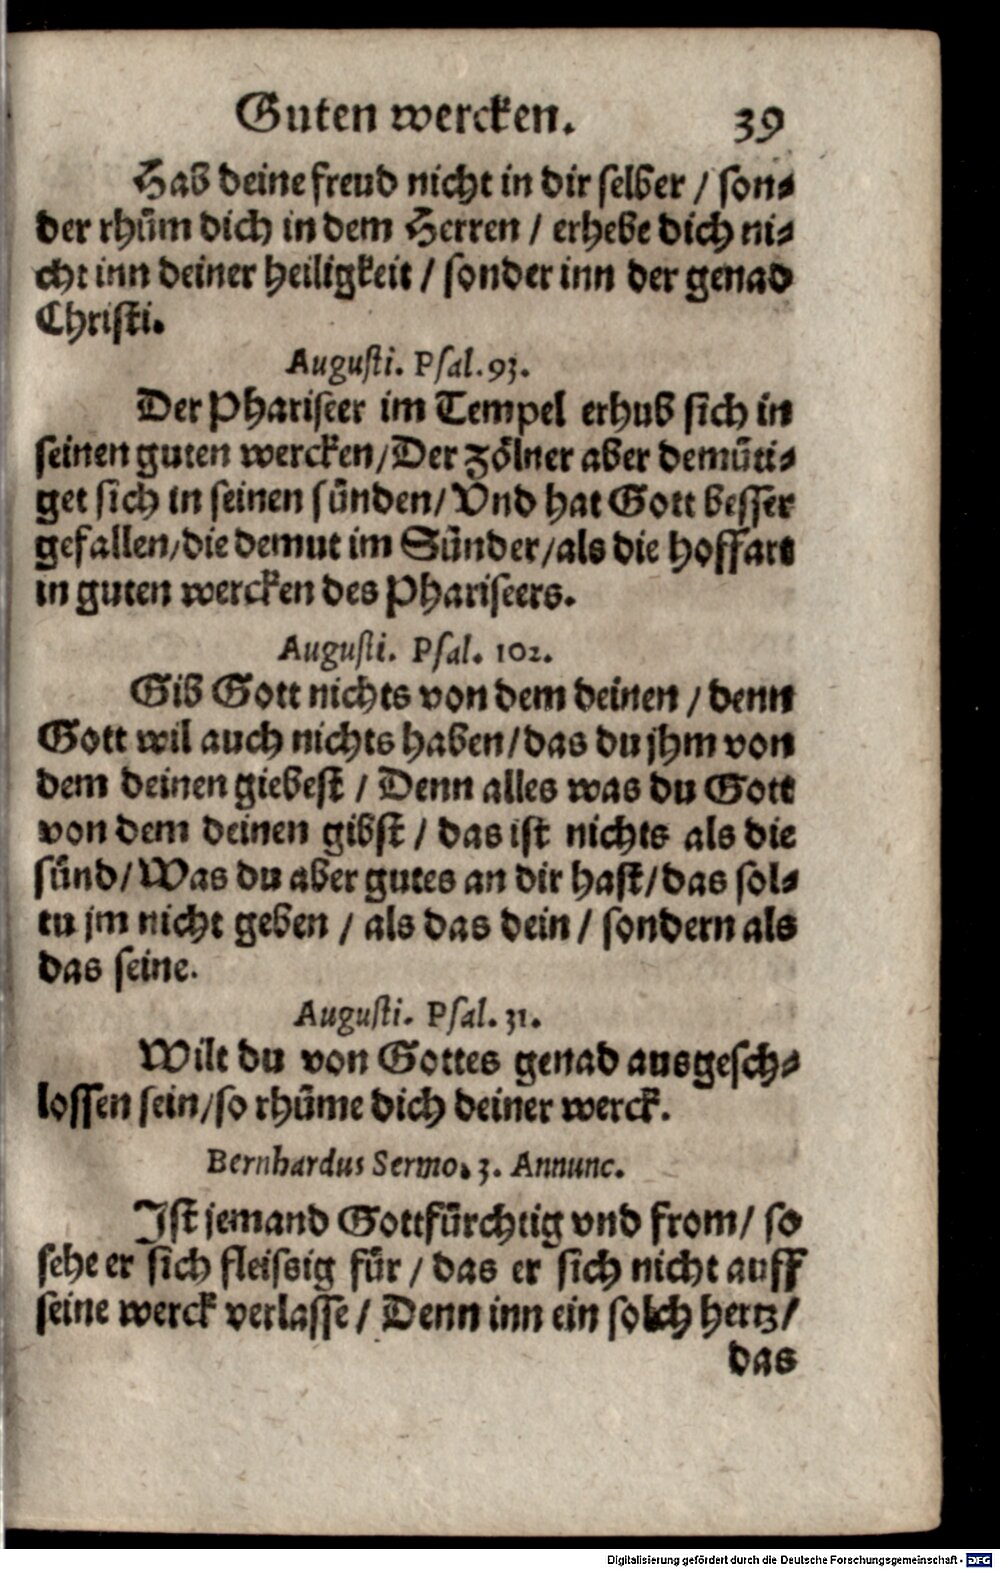 Guten wercken. 39
Hab deine freud nicht in dir selber / son⸗
der rhuͤm dich in dem Herren / erhebe dich ni⸗
cht inn deiner heiligkeit / sonder inn der genad
Christi.
Augusti. Psal. 93.
Der Phariseer im Tempel erhub sich in
seinen guten wercken/ Der zoͤlner aber demuͤti⸗
get sich in seinen suͤnden/ Vnd hat Gott besser
gefallen/ die demut im Suͤnder/ als die hoffart
in guten wercken des Phariseers.
Augusti. Psal. 102.
Gib Gott nichts von dem deinen / denn
Gott wil auch nichts haben/ das du jhm von
dem deinen giebest / Denn alles was du Gott
von dem deinen gibst / das ist nichts als die
suͤnd/ Was du aber gutes an dir hast/ das sol⸗
tu jm nicht geben / als das dein / sondern als
das seine.
Augusti. Psal. 31.
Wilt du von Gottes genad ausgesch⸗
lossen sein/ so rhuͤme dich deiner werck.
Bernhardus Sermo. 3. Annunc.
Ist jemand Gottfuͤrchtig vnd from/ so
sehe er sich fleissig fuͤr / das er sich nicht auff
seine werck verlasse / Denn inn ein solch hertz/
das
Digitalisierung gefördert durch die Deutsche Forschungsgemeinschaft - DFG